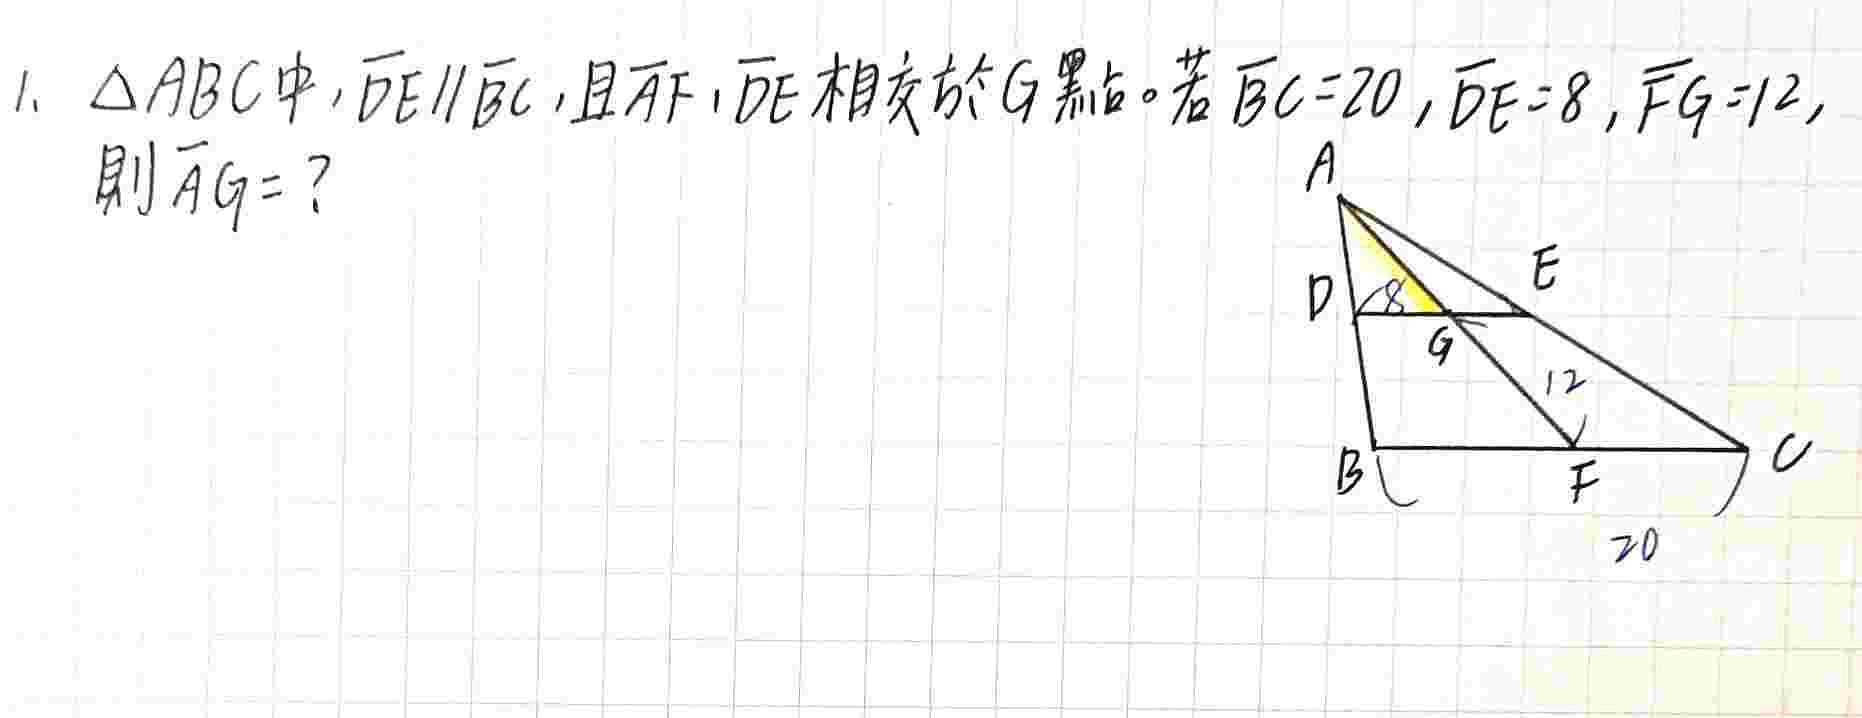 1. △ABC中,D̅E̅∥B̅C̅,且A̅F̅、D̅E̅相交於G點。若B̅C̅=20,D̅E̅=8,F̅G̅=12,
則A̅G̅=?
A
D
8
E
G
12
B
F
C
20